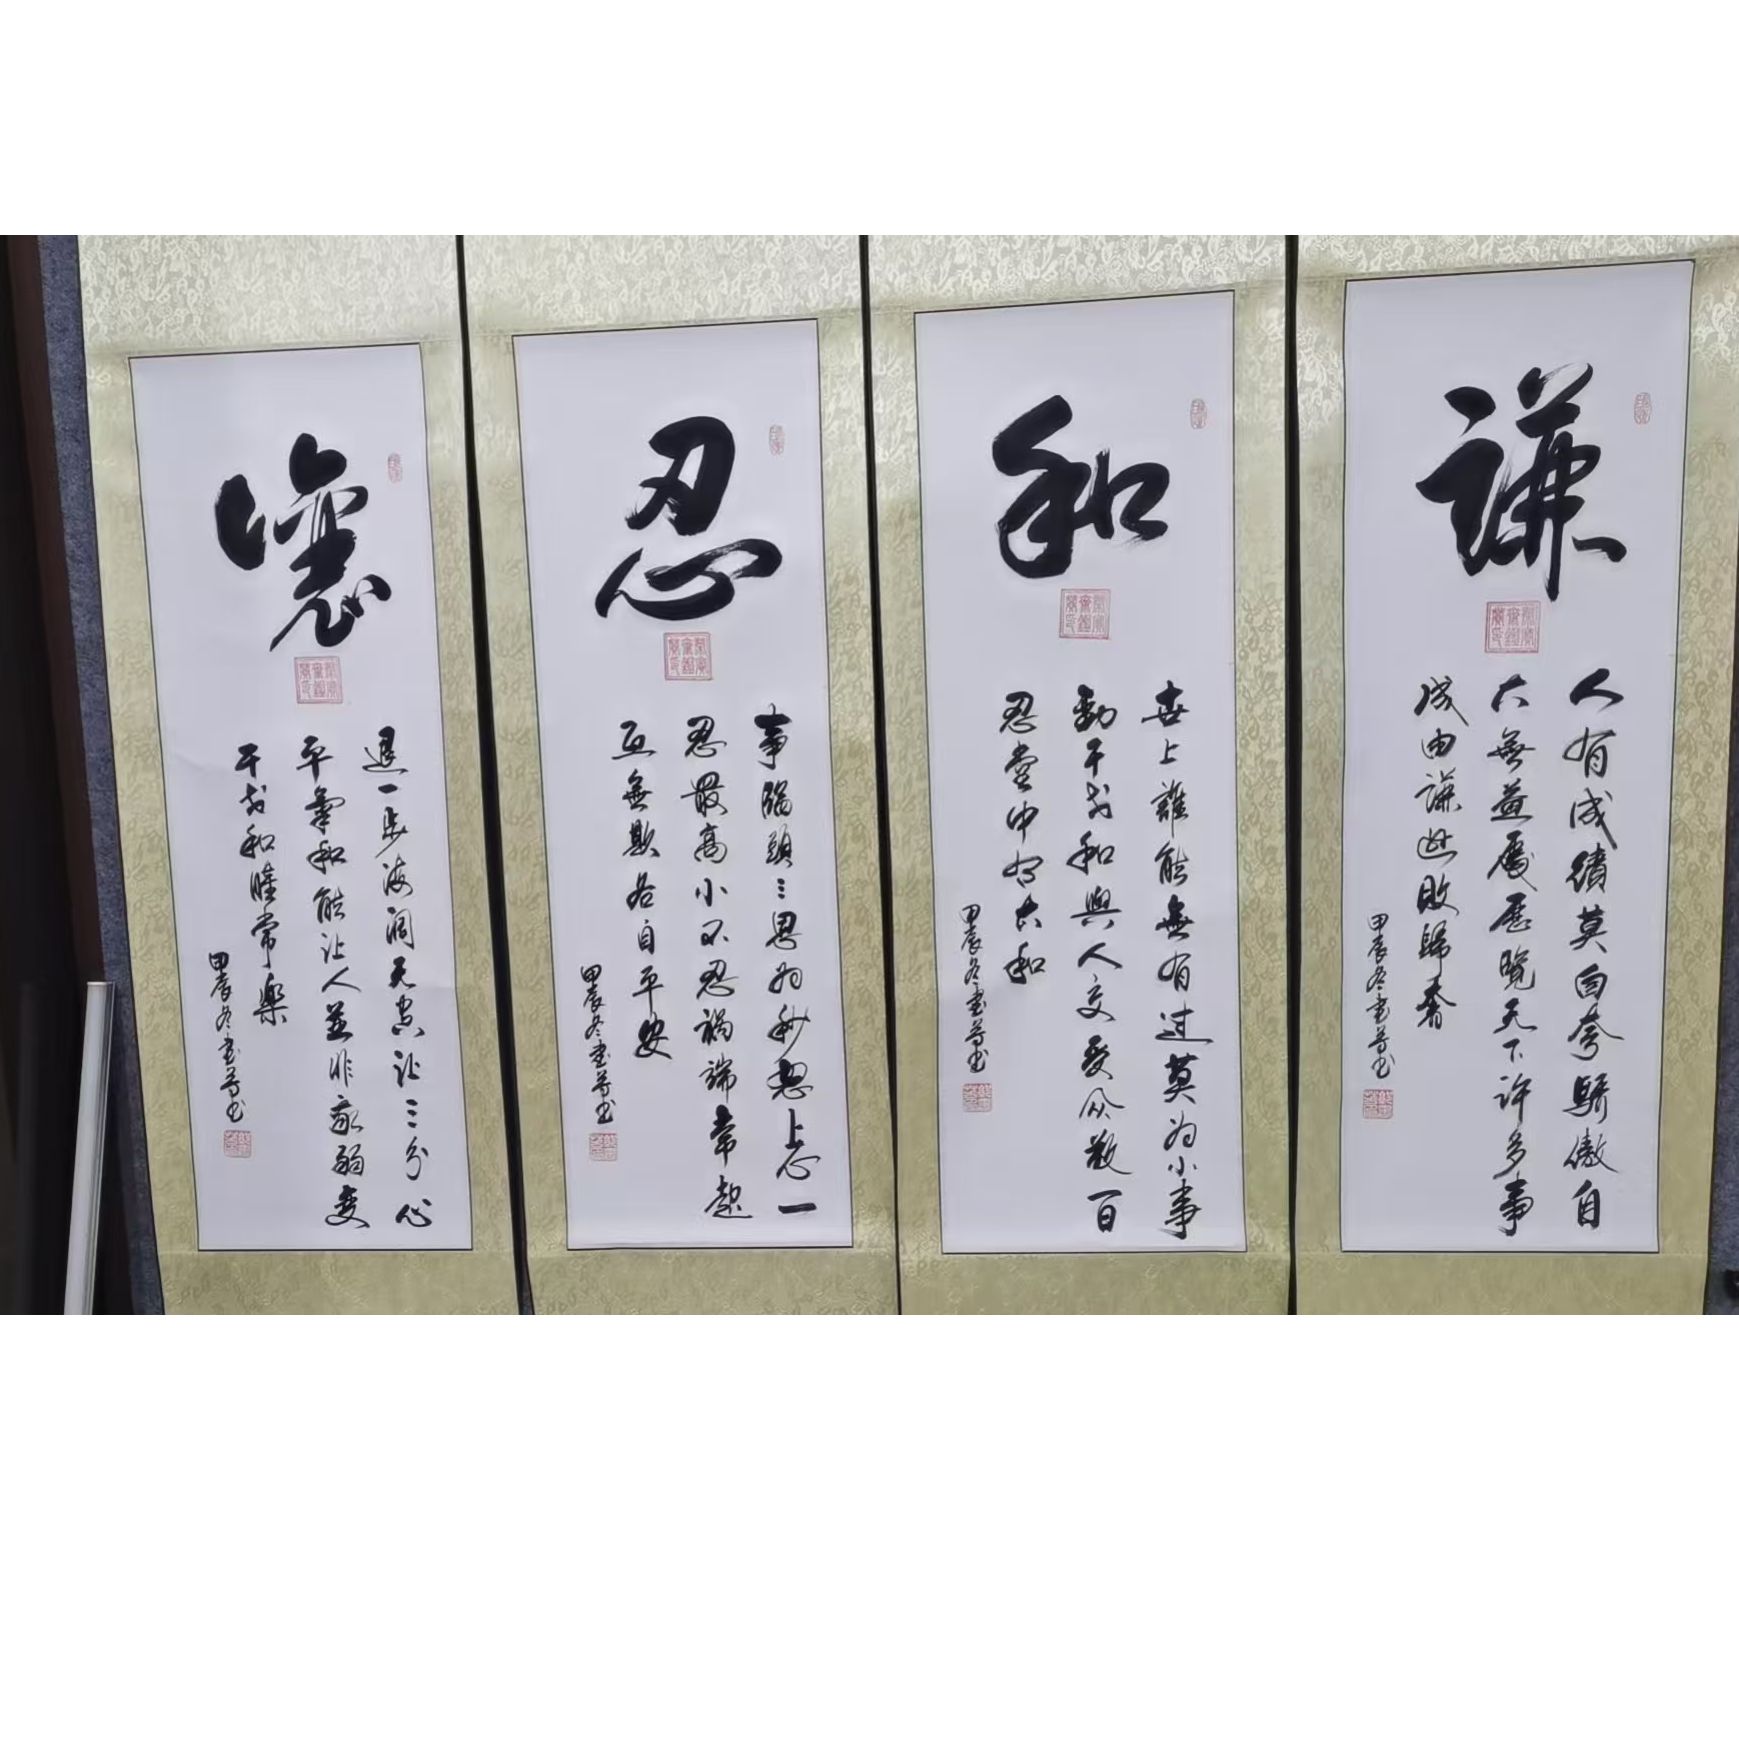 謙
人有成績莫自夸驕傲自
大無益處歷覽天下許多事
成由謙遜敗歸奢
甲辰冬書
和
世上誰能無有过莫为小事
動干戈和與人交受众敬百
忍堂中有太和
甲辰冬書
忍
事臨頭三思为妙怒上心一
忍最高小不忍禍端常起
互無欺各自平安
甲辰冬書
讓
退一步海阔天空让三分心
平氣和能让人並非家弱变
干戈和睦常樂
甲辰冬書